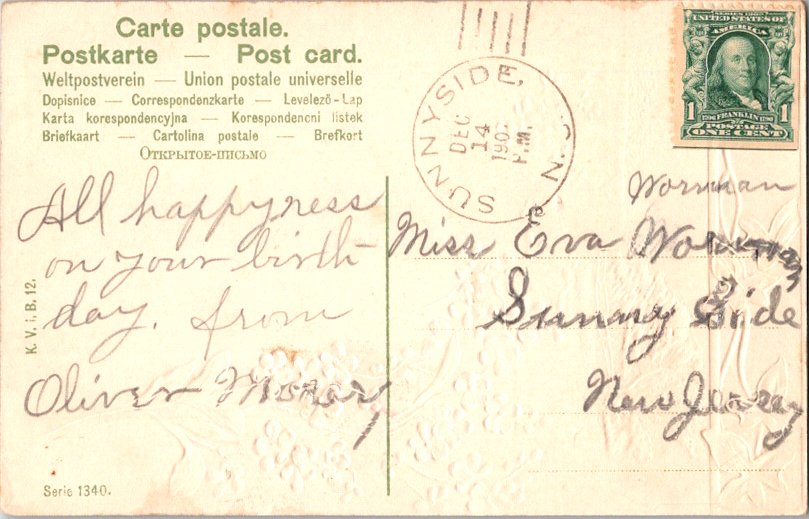 Carte postale.
Postkarte — Post card.
Weltpostverein — Union postale universelle
Dopisnice — Correspondenzkarte — Levelező-Lap
Karta korespondencyjna — Korespondencni listek
Briefkaart — Cartolina postale — Brefkort
Открытое-письмо
SUNNYSIDE, N.
DEC
14
P.M.
SERIES 1902
UNITED STATES OF
AMERICA
1 1
1706 FRANKLIN 1790
POSTAGE
ONE CENT
All happyness
on your birth-
day. from
Oliver
Worman
Miss Eva Worman
Sunny Side
New Jersey
K. V. i. B. 12.
Serie 1340.